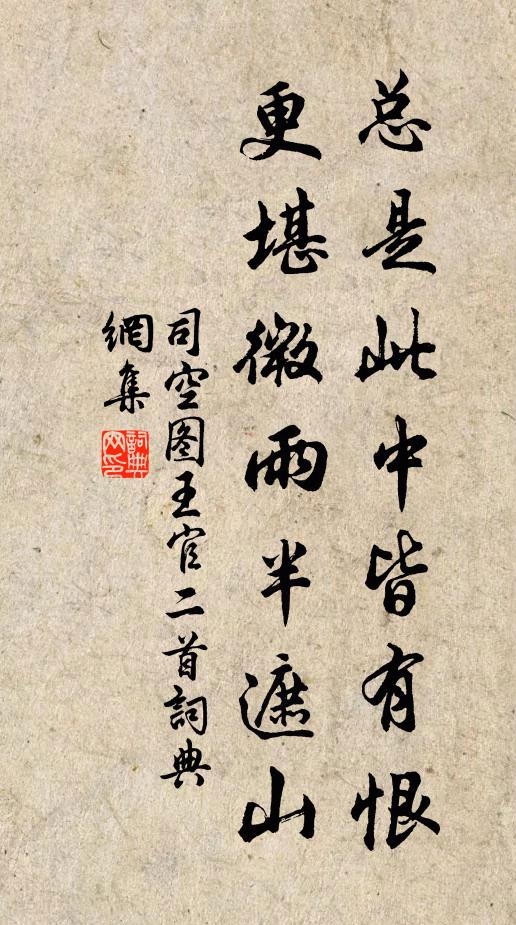 总是此中皆有恨
更堪微雨半遮山
司空图王官二首詞典
網集
詞典网印